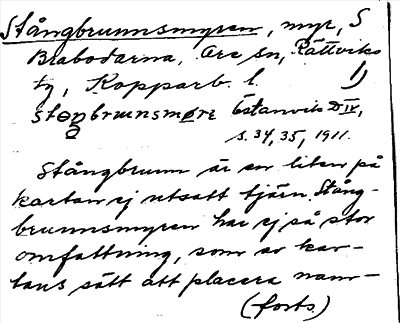 Stångbrunnsmyren, myr, S
Brabodarna, Ore sn, Rättviks
tg, Kopparb. l. 1)
stəŋbrunsmøre Östanvik D IV,
s. 34, 35, 1911.
Stångbrunn är en liten på
kartan ej utsatt tjärn. Stång-
brunnsmyren har ej så stor
omfattning, som av kar-
tans sätt att placera namn-
(forts.)